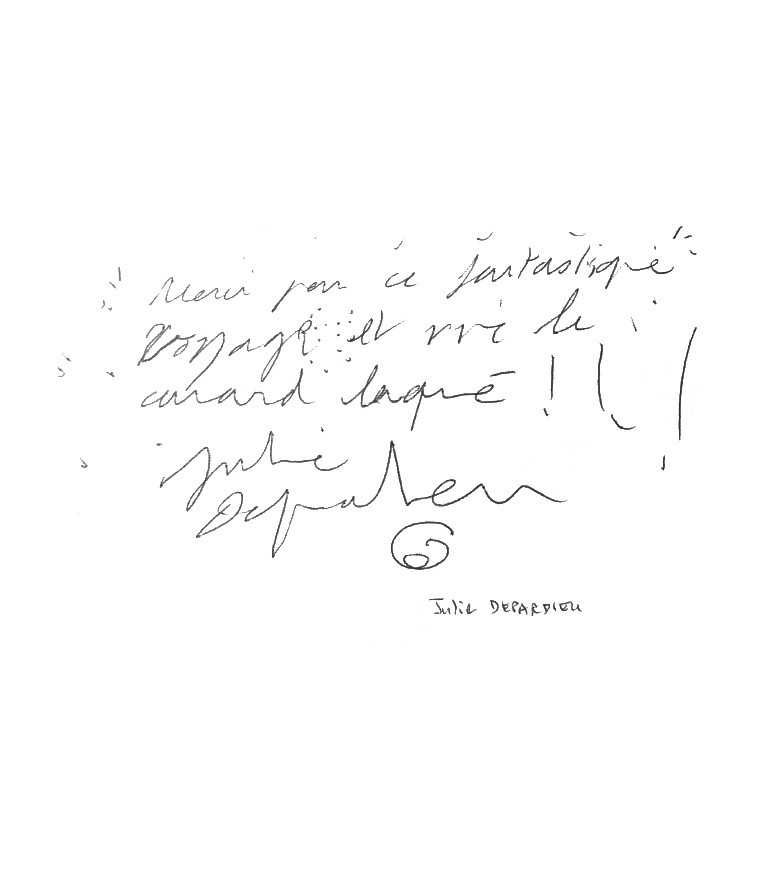 Merci pour ce fantastique
voyage et vive le
canard laqué !!!
Julie
Depardieu
Julie DEPARDIEU